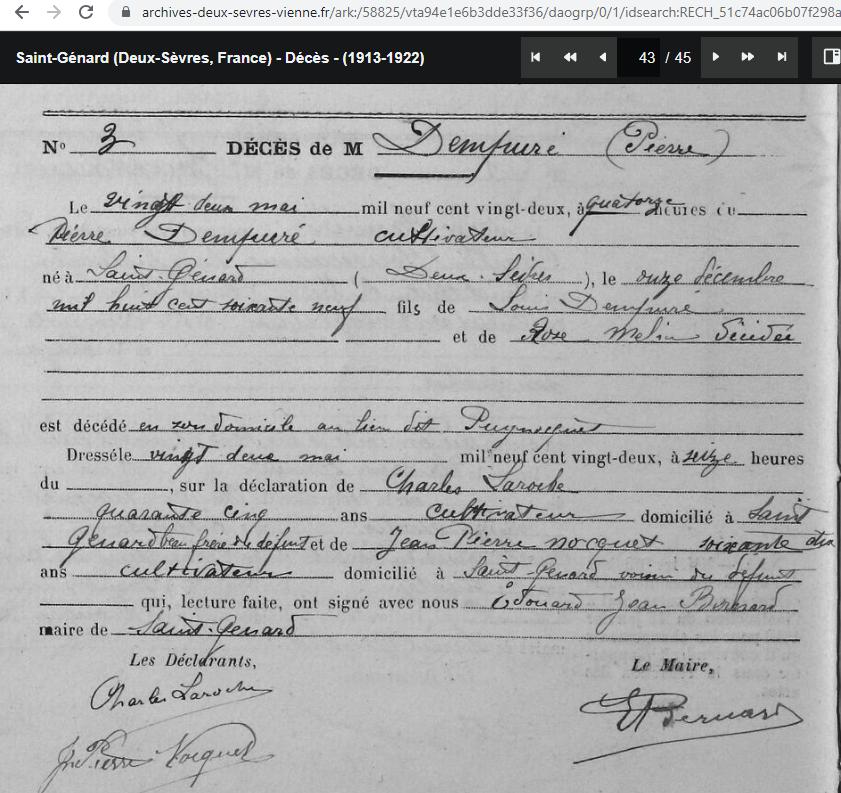 archives-deux-sevres-vienne.fr/ark:/58825/vta94e1e6b3dde33f36/daogrp/0/1/idsearch:RECH_51c74ac06b07f298a
Saint-Génard (Deux-Sèvres, France) - Décès - (1913-1922)
43 / 45
N° 3 DÉCÈS de M Dempuré (Pierre)
Le vingt deux mai mil neuf cent vingt-deux, à quatorze heures du
Pierre Dempuré cultivateur
né à Saint-Génard (Deux-Sèvres), le onze décembre
mil huit cent soixante neuf fils de Louis Dempuré
et de Rose décédés
est décédé en son domicile au lieu dit
Dressé le vingt deux mai mil neuf cent vingt-deux, à seize heures
du , sur la déclaration de Charles Laroche
quarante cinq ans cultivateur domicilié à Saint
Génard beau frère du défunt et de Jean Pierre Nocquet soixante dix
ans cultivateur domicilié à Saint Génard voisin du défunt
qui, lecture faite, ont signé avec nous Edouard Jean Bernard
maire de Saint-Genard
Les Déclarants,
Le Maire,
Charles Laroche
Bernard
Jn Pierre Nocquet